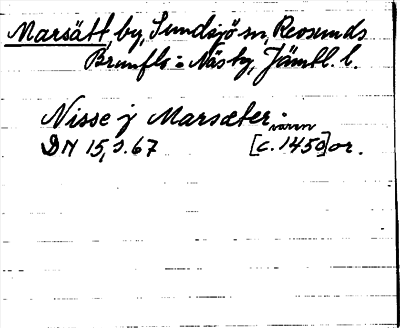 Marsätt, by, Sundsjö sn, Revsunds
Brunflo o Näsby, Jämtl. l.
Nisse j Marsæter
DN 15, s. 67 [c. 1450] or.